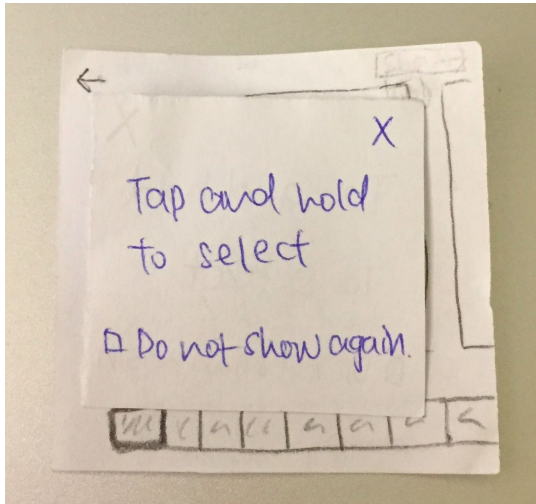 X
Tap and hold
to select
Do not show again.